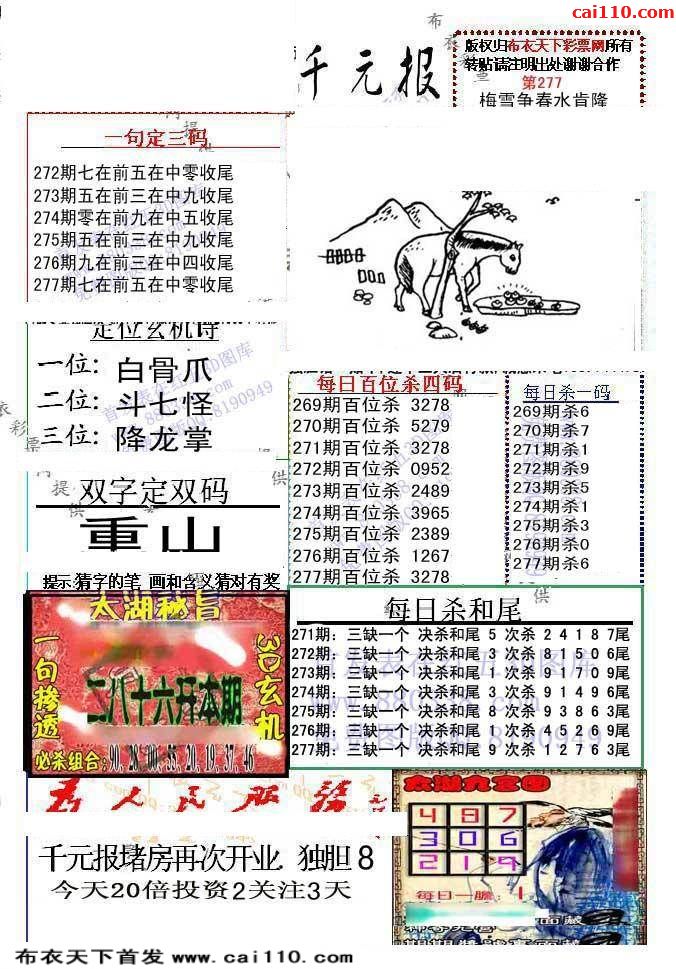 cai110.com
千元报
版权归布衣天下彩票网所有
转贴请注明出处谢谢合作
第277
梅雪争春水肯隆
一句定三码
272期七在前五在中零收尾
273期五在前三在中九收尾
274期零在前九在中五收尾
275期五在前三在中九收尾
276期九在前三在中四收尾
277期七在前五在中零收尾
定位玄机诗
一位: 白骨爪
二位: 斗七怪
三位: 降龙掌
双字定双码
重山
提示:猜字的笔 画和含义猜对有奖
每日百位杀四码
269期百位杀 3278
270期百位杀 5279
271期百位杀 3278
272期百位杀 0952
273期百位杀 2489
274期百位杀 3965
275期百位杀 2389
276期百位杀 1267
277期百位杀 3278
每日杀一码
269期杀6
270期杀7
271期杀1
272期杀9
273期杀5
274期杀1
275期杀3
276期杀0
277期杀6
太湖秘旨
一句掺透
3D玄机
二八十六开本期
必杀组合: 90, 28, 00, 55, 20, 19, 37, 46
每日杀和尾
271期: 三缺一个 决杀和尾 5 次杀 2 4 1 8 7尾
272期: 三缺一个 决杀和尾 3 次杀 8 1 5 0 6尾
273期: 三缺一个 决杀和尾 1 次杀 2 1 7 0 9尾
274期: 三缺一个 决杀和尾 3 次杀 9 1 4 9 6尾
275期: 三缺一个 决杀和尾 8 次杀 9 3 8 6 3尾
276期: 三缺一个 决杀和尾 1 次杀 4 5 2 6 9尾
277期: 三缺一个 决杀和尾 9 次杀 1 2 7 6 3尾
为人民服务
千元报堵房再次开业 独胆 8
今天20倍投资2关注3天
太湖九宫图
4 8 7
3 0 6
2 1 9
每日一胆: 1
布衣天下首发 www.cai110.com